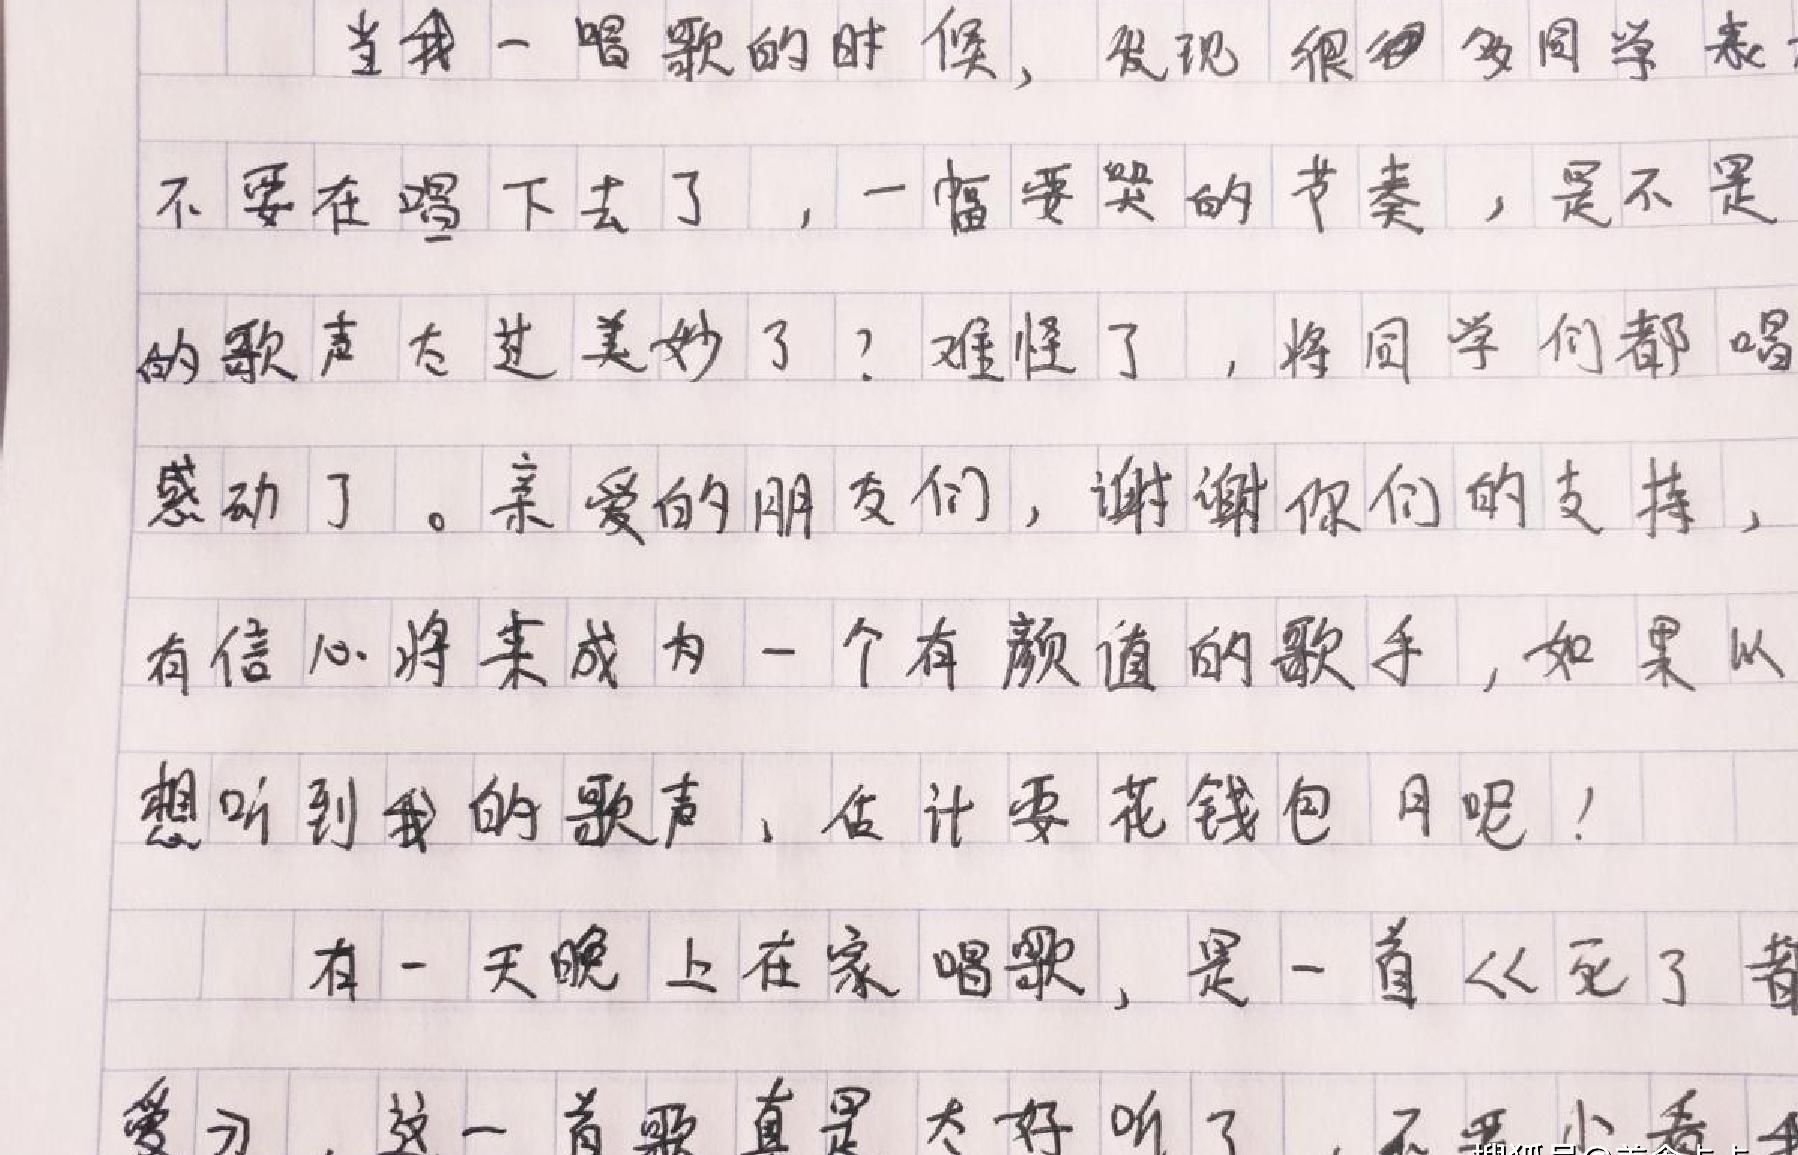 当我一唱歌的时候，发现很多同学表
不要在唱下去了，一幅要哭的节奏，是不是
的歌声太过美妙了？难怪了，将同学们都唱
感动了。亲爱的朋友们，谢谢你们的支持，
有信心将来成为一个有颜值的歌手，如果以
想听到我的歌声，估计要花钱包月呢！
有一天晚上在家唱歌，是一首《死了都
爱》，这一首歌真是太好听了，不要小看我